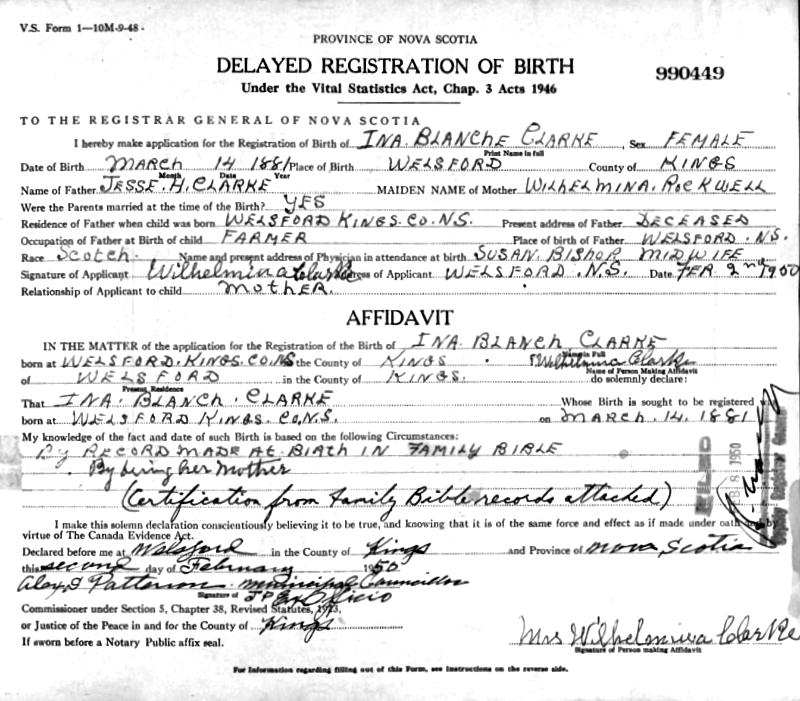 V.S. Form 1—10M-9-48-
PROVINCE OF NOVA SCOTIA
DELAYED REGISTRATION OF BIRTH
990449
Under the Vital Statistics Act, Chap. 3 Acts 1946
TO THE REGISTRAR GENERAL OF NOVA SCOTIA
I hereby make application for the Registration of Birth of INA BLANCHE CLARKE, Sex FEMALE
Print Name in full
Date of Birth MARCH 14 1881 Place of Birth WELSFORD County of KINGS
Month Date Year
Name of Father JESSE. H. CLARKE MAIDEN NAME of Mother WILHELMINA. ROCKWELL
Were the Parents married at the time of Birth? YES
Residence of Father when child was born WELSFORD KINGS. CO. N.S. Present address of Father DECEASED
Occupation of Father at Birth of child FARMER Place of birth of Father WELSFORD. N.S.
Race Scotch. Name and present address of Physician in attendance at birth SUSAN. BISHOP MIDWIFE
Signature of Applicant Wilhelmina Clarke Address of Applicant WELSFORD. N.S. Date FEB 2nd 1950
Relationship of Applicant to child MOTHER.
AFFIDAVIT
IN THE MATTER of the application for the Registration of the Birth of INA BLANCH CLARKE
Name in Full
born at WELSFORD. KINGS. CO. NS the County of KINGS. Wilhelmina Clarke
Name of Person Making Affidavit
of WELSFORD in the County of KINGS. do solemnly declare:
Present Residence
That INA. BLANCH. CLARKE Whose Birth is sought to be registered
born at WELSFORD KINGS. CO. N.S. on MARCH. 14. 1881
My knowledge of the fact and date of such Birth is based on the following Circumstances:
By RECORD MADE AT BIRTH IN FAMILY BIBLE
By being her Mother
(Certification from family Bible records attached)
FEB 8 1950
I make this solemn declaration conscientiously believing it to be true, and knowing that it is of the same force and effect as if made under oath and by
virtue of The Canada Evidence Act.
Declared before me at Welsford in the County of Kings and Province of Nova Scotia
this second day of February 1950
Alex D Patterson Municipal Councillor
Signature of J P Ex Officio
Commissioner under Section 5, Chapter 38, Revised Statutes, 1923,
or Justice of the Peace in and for the County of Kings
If sworn before a Notary Public affix seal.
Mrs Wilhelmina Clarke
Signature of Person making Affidavit
For Information regarding filling out of this Form, see Instructions on the reverse side.